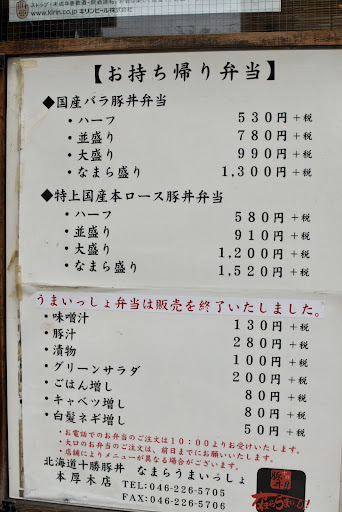 www.kirin.co.jp キリンビール株式会社
【お持ち帰り弁当】
◆国産バラ豚丼弁当
・ハーフ 530円+税
・並盛り 780円+税
・大盛り 990円+税
・なまら盛り 1,300円+税
◆特上国産本ロース豚丼弁当
・ハーフ 580円+税
・並盛り 910円+税
・大盛り 1,200円+税
・なまら盛り 1,520円+税
うまいっしょ弁当は販売を終了いたしました。
・味噌汁 130円+税
・豚汁 280円+税
・漬物 100円+税
・グリーンサラダ 200円+税
・ごはん増し 80円+税
・キャベツ増し 80円+税
・白髪ネギ増し 50円+税
・お電話でのお弁当のご注文は10:00よりお受けいたします。
・大口のお弁当のご注文は、前日までにお願いいたします。
・店舗によりメニューが異なる場合がございます。
北海道十勝豚丼 なまらうまいっしょ
本厚木店 TEL:046-226-5705
FAX:046-226-5706